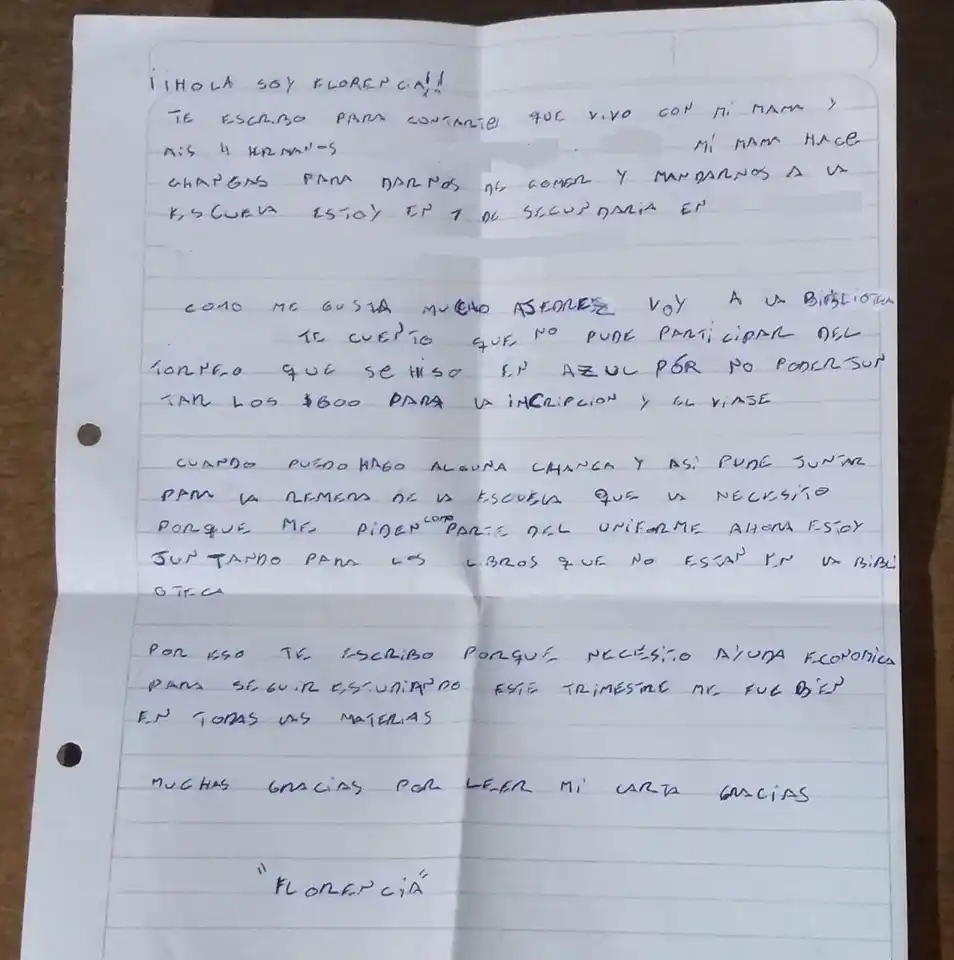 ¡¡HOLA SOY FLORENCIA!!
TE ESCRIBO PARA CONTARTE QUE VIVO CON MI MAMA Y
MIS 4 HERMANOS MI MAMA HACE
CHANGAS PARA DARNOS DE COMER Y MANDARNOS A LA
ESCUELA ESTOY EN 1 DE SECUNDARIA EN
COMO ME GUSTA MUCHO ASEDRES VOY A LA BIBLIOTECA
TE CUENTO QUE NO PUDE PARTICIPAR DEL
TORNEO QUE SE HISO EN AZUL PÓR NO PODER JUN
TAR LOS $600 PARA LA INCRIPCION Y EL VIAJE
CUANDO PUEDO HAGO ALGUNA CHANGA Y ASI PUDE JUNTAR
PARA LA REMERA DE LA ESCUELA QUE LA NECESITO
PORQUE ME PIDEN COMO PARTE DEL UNIFORME AHORA ESTOY
JUNTANDO PARA LOS LIBROS QUE NO ESTAN EN LA BIBLI
OTECA
POR ESO TE ESCRIBO PORQUE NECESITO AYUDA ECONOMICA
PARA SEGUIR ESTUDIANDO ESTE TRIMESTRE ME FUE BIEN
EN TODAS LAS MATERIAS
MUCHAS GRACIAS POR LEER MI CARTA GRACIAS
"FLORENCIA"